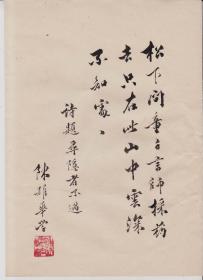 松下問童子言師採药
去只在此山中雲深
不知處、
詩題尋隱者不遇
陳